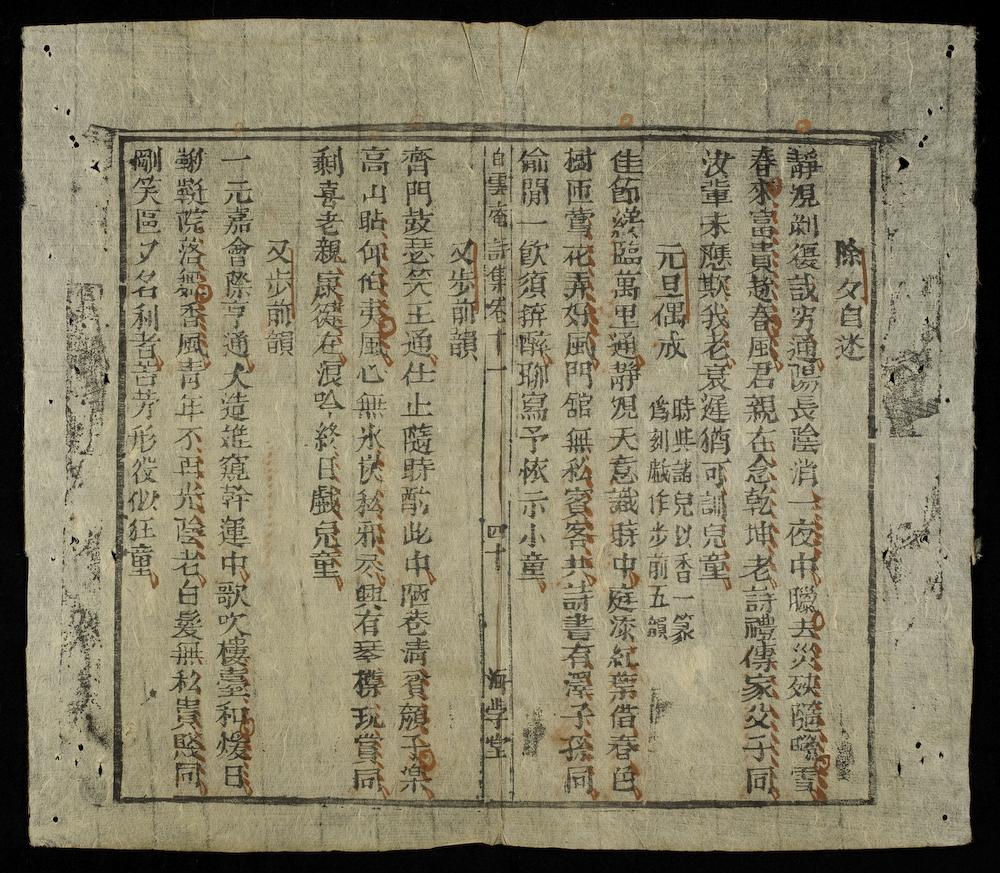 除夕自述
靜觀剝復哉窮通陽長陰消一夜中臘去災殃隨曉雪
春來富貴趂春風君親在念乾坤老詩禮傳家父子同
汝輩未應欺我老衰遲猶可訓兒童
元旦偶成
時與諸兒以香一篆
爲刻戱作步前五韻
佳節纔臨萬里通靜觀天意識時中庭添紅葉借春色
樹匝鶯花弄好風門舘無私賓客共詩書有澤子孫同
偷閒一飮須拚醉聊寫予懷示小童
白雲庵詩集卷十一
四十
海學堂
又步前韻
齊門鼓瑟笑王通仕止隨時酌此中陋巷淸貧顔子樂
高山貼仰伯夷風心無氷炭私邪忝興有琴樽玩賞同
剩喜老親康健在浪吟終日戱兒童
又步前韻
一元嘉會際亨通大造進窺幹運中歌吹樓臺和煖日
鞦韆院落舞香風靑年不再光陰老白髮無私貴賤同
剛笑區夕名利者苦勞形役似狂童